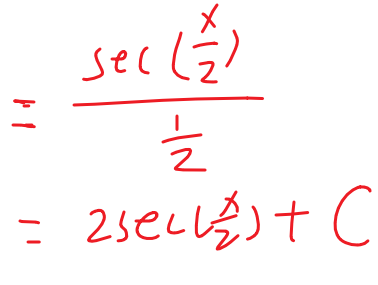 = sec(x/2) / 1/2
= 2sec(x/2) + C